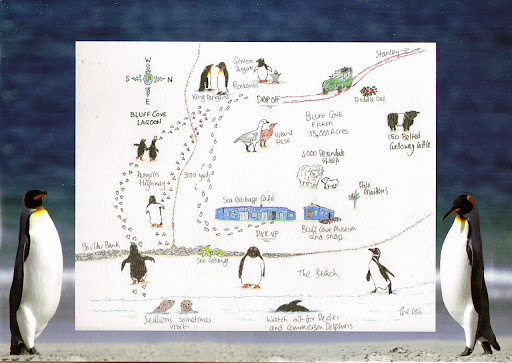 W
S N
E
Gentoo
Penguins
Rockeries
King Penguins
Stanley
DROP OFF
Diddle Dee
BLUFF COVE
LAGOON
BLUFF COVE
FARM
35,000 Acres
Upland
Geese
150 Belted
Galloway Cattle
4000 Polwarth
Sheep
Penguin
Highway
300 yards
Pale
Maidens
Sea Cabbage Café
PICK UP
Bluff Cove Museum
and shop
Boulder Bank
Sea Cabbage
The Beach
Sealions sometimes
visit
Watch out for Peales
and Commerson Dolphins
The sea